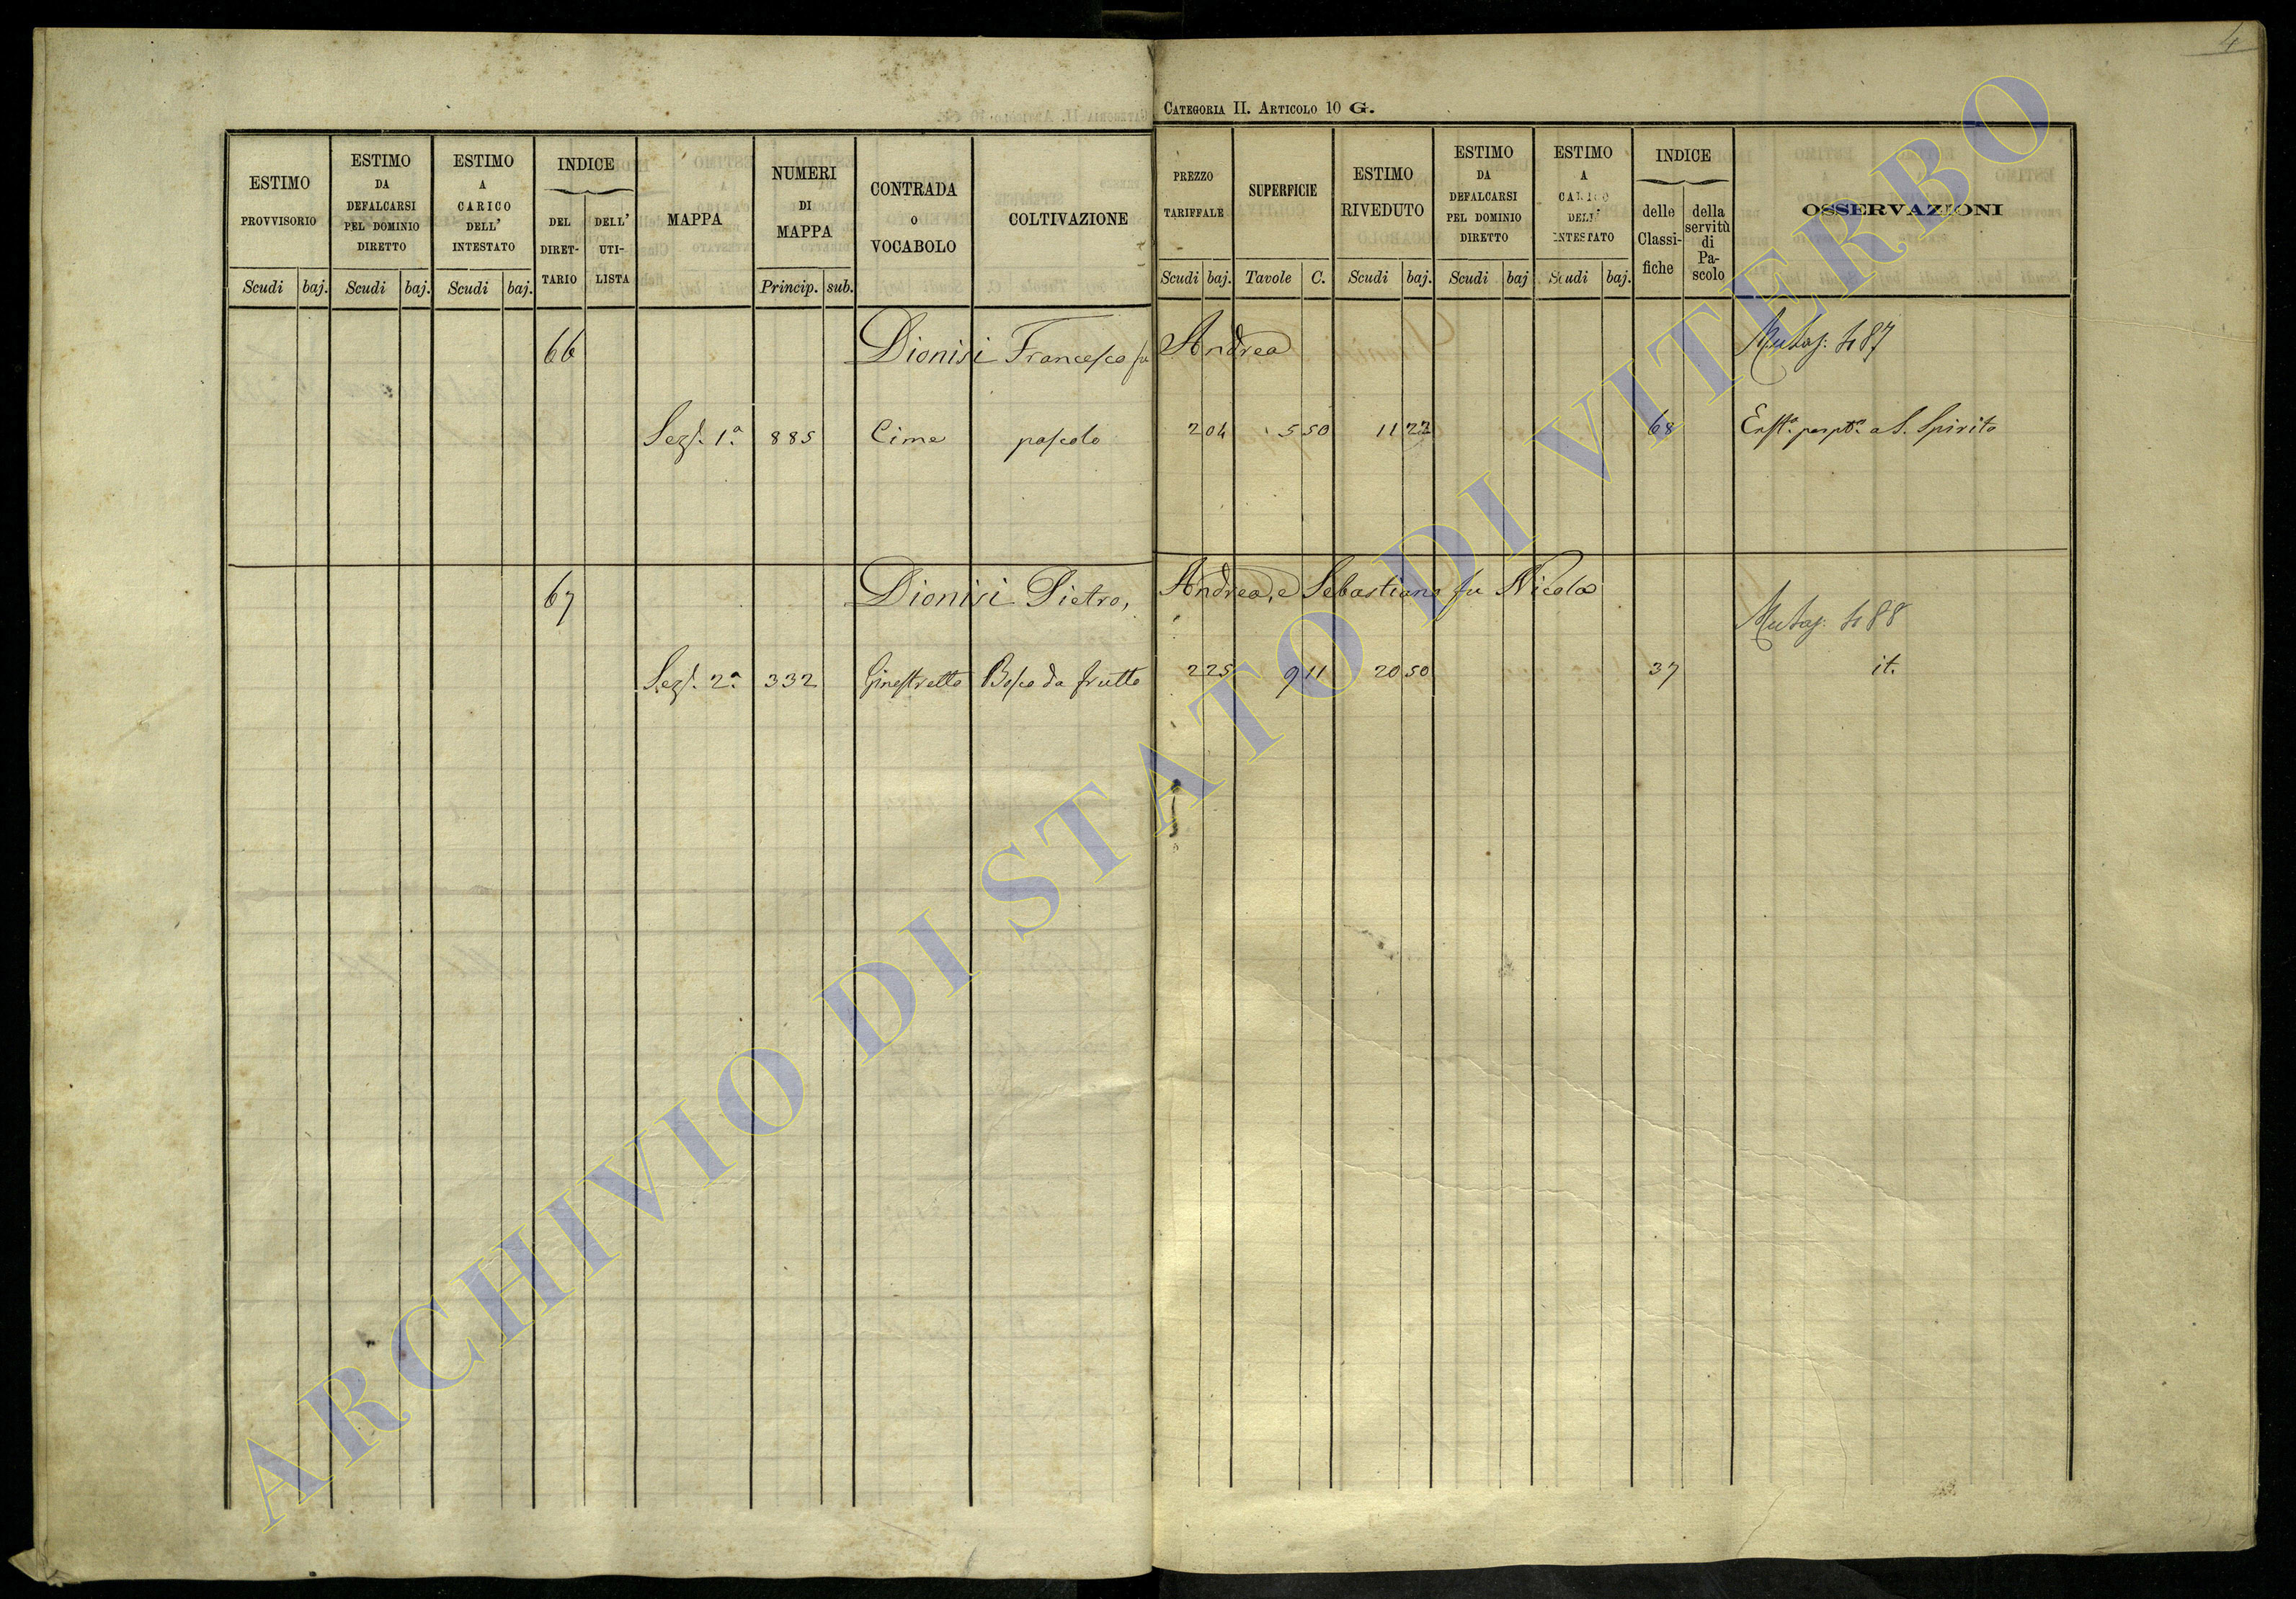 4
CATEGORIA II. ARTICOLO 10 G.
ESTIMO PROVVISORIO Scudi baj.
ESTIMO DA DEFALCARSI PEL DOMINIO DIRETTO Scudi baj.
ESTIMO A CARICO DELL' INTESTATO Scudi baj.
INDICE DEL DIRET-TARIO DELL' UTI-LISTA
MAPPA
NUMERI DI MAPPA Princip. sub.
CONTRADA O VOCABOLO
COLTIVAZIONE
PREZZO TARIFFALE Scudi baj.
SUPERFICIE Tavole C.
ESTIMO RIVEDUTO Scudi baj.
ESTIMO DA DEFALCARSI PEL DOMINIO DIRETTO Scudi baj
ESTIMO A CARICO DELL' INTESTATO Scudi baj.
INDICE delle Classi-fiche della servitù di Pa-scolo
OSSERVAZIONI
66 Dionisi Francesco fu Andrea Mutaz: 487
Sez. 1ª 885 Cime pascolo 2 04 5 50 11 22 68 Enfta. perpta. a S. Spirito
67 Dionisi Pietro, Andrea, e Sebastiano fu Nicola
Mutaz: 488
Sez. 2ª 332 Ginestretto Bosco da frutto 2 25 9 11 20 50 37 it.
ARCHIVIO DI STATO DI VITERBO